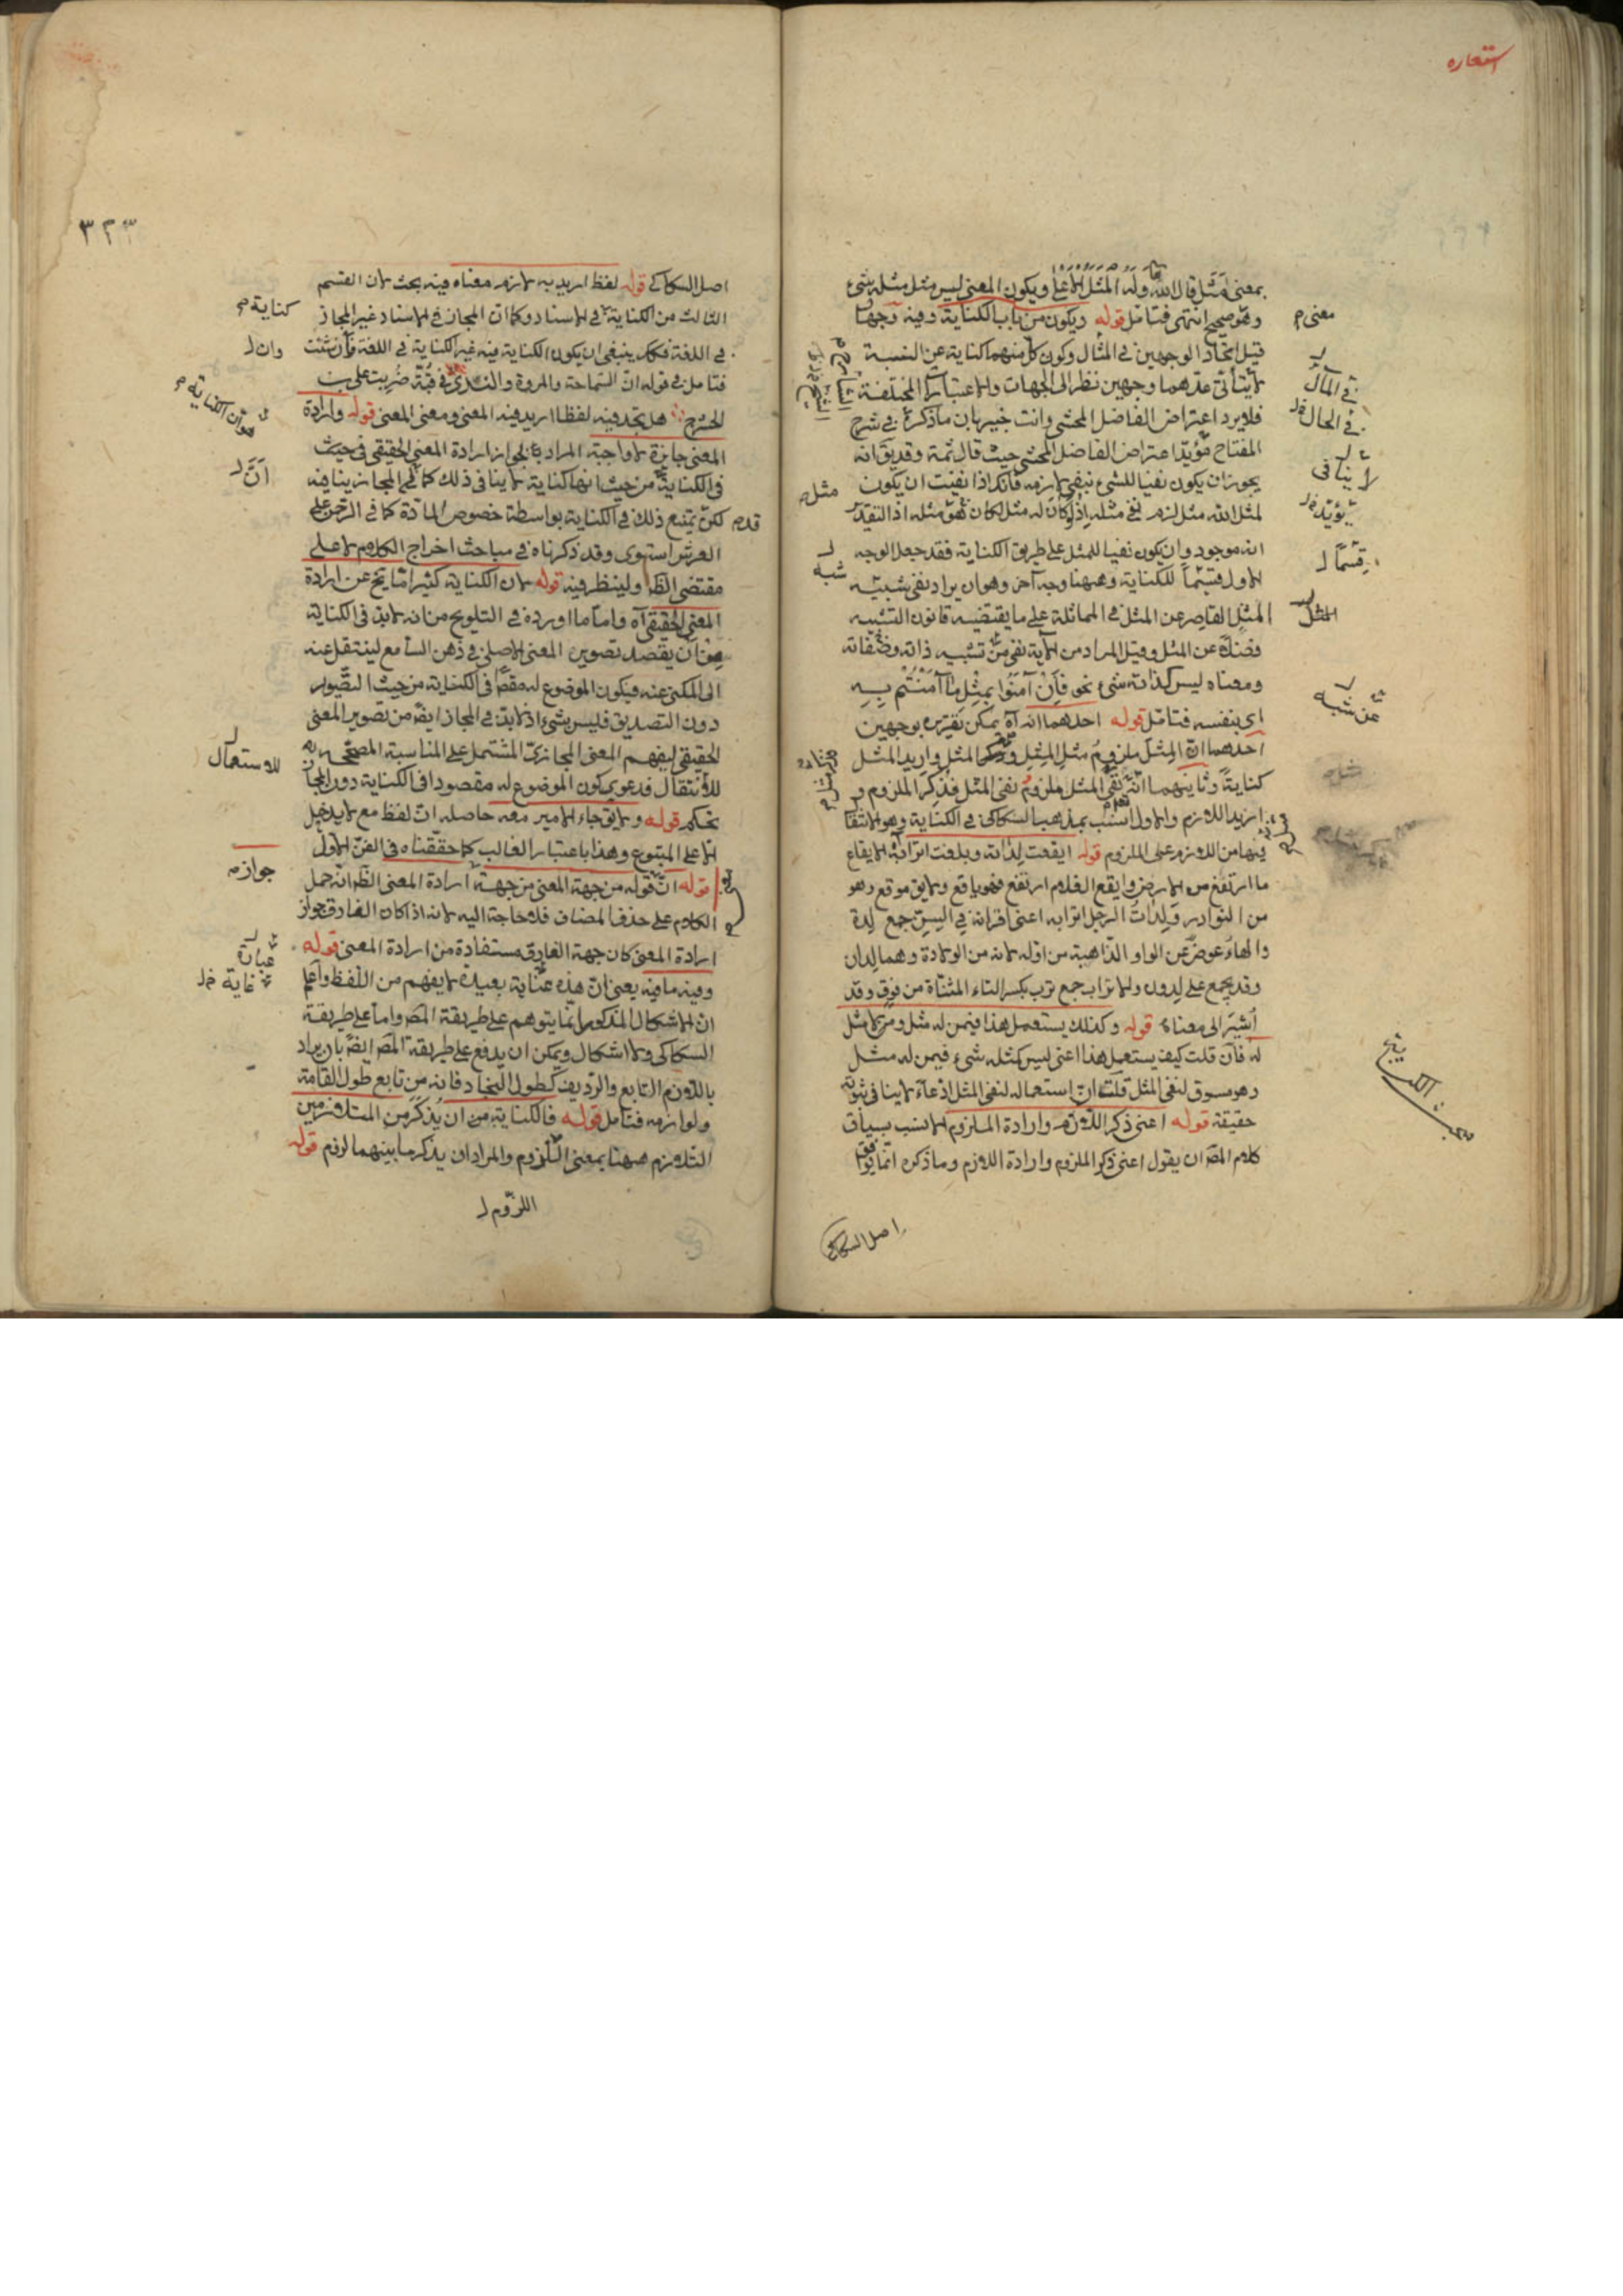 استعاره
بمعنى مثل قال الله تعالى وله المثل الاعلى ويكون المعنى ليس مثل مثله شئ
وهو صحيح انتهى فتامل قوله ويكون من باب الكناية وفيه وجهان
قيل اتحاد الوجهين في المثال وكون كل منهما كناية عن النسبة
لا يتأتى عدهما وجهين نظر الى الجهات والاعتبارات المختلفة
فلا يرد اعتراض الفاضل المحشى وانت خبير بان ما ذكره في شرح
المفتاح مؤيد اعتراض الفاضل المحشى حيث قال ثمة وقد يق انه
يجوز ان يكون نفيا للشئ بنفى لازمه فانك اذا نفيت ان يكون
لمثل الله مثل لزم نفى مثله اذ لو كان له مثل لكان هو مثل مثله اذ التقدير
انه موجود وان يكون نفيا للمثل على طريق الكناية فقد جعل الوجه
الاول قسيما للكناية وههنا وجه آخر وهو ان يراد نفى شبيه
المثل القاصر عن المثل في المماثلة على ما يقتضيه قانون التشبيه
فضلا عن المثل وقيل المراد من الآية نفى من تشبيه ذاته وصفاته
ومعناه ليس كذاته شئ نحو فان آمنوا بمثل ما آمنتم به
اى بنفسه فتامل قوله احدهما انه آه يمكن تقريره بوجهين
احدهما ان المثل ملزوم مثل المثل وذكر المثل واريد المثل
كناية وثانيهما ان نفى المثل ملزوم نفى المثل فذكر الملزوم و
اريد اللازم والاول انسب بمذهب السكاكى في الكناية وهو الانتقال
فيها من اللازم على الملزوم قوله ايفعت لداته وبلغت اترابه الايفاع
ما ارتفع من الارض وايفع الغلام ارتفع فهو يافع ولا يق موفع وهو
من النوادر ولدات الرجل اترابه اعنى اقرانه في السن جمع لدة
والهاء عوض عن الواو الذاهبة من اوله لانه من الولادة وهما لدان
وقد يجمع على لدون والاتراب جمع ترب بكسر التاء المثناة من فوق وقد
اشير الى معناه قوله وكذلك يستعمل هذا فيمن له مثل ومن لا مثل
له فان قلت كيف يستعمل هذا اعنى ليس كمثله شئ فيمن له مثل
وهو مسوق لنفى المثل قلت ان استعماله لنفى المثل ادعاء لا ينافى ثبوته
حقيقة قوله اعنى ذكر اللازم وارادة الملزوم الانسب بسياق
كلام المص ان يقول اعنى ذكر الملزوم وارادة اللازم وما ذكره انما يوافق
اصل السكاكى
معنى م
في المآل
في الحال
لا ينافى
يؤيد
قسما
المثل
عن شبه
مثل
شبه
٣٢٣
اصل السكاكى قوله لفظ اريد به لازم معناه فيه بحث لان القسم
الثالث من الكناية في الاسناد وكما ان المجاز في الاسناد غير المجاز
في اللغة فكك ينبغى ان يكون الكناية فيه غير الكناية في اللغة فان شئت
فتامل في قوله ان السماحة والمروة والندى في قبة ضربت على بن
الحشرج هل تجد فيه لفظا اريد فيه المعنى ومعنى المعنى قوله وارادة
المعنى جائزة لا واجبة المراد بجواز ارادة المعنى الحقيقى في حيث
في الكناية من حيث انها كناية لا ينافى ذلك كما ان المجاز ينافيه
لكن يمتنع ذلك في الكناية بواسطة خصوص المادة كما في الرحمن على
العرش استوى وقد ذكرناه في مباحث اخراج الكلام لا على
مقتضى الظا ولينظر فيه قوله لان الكناية كثيرا ما يخ عن ارادة
المعنى الحقيقى آه واما ما اورده في التلويح من انه لا بد في الكناية
من ان يقصد تصوير المعنى الاصلى في ذهن السامع لينتقل عنه
الى المكنى عنه فيكون الموضوع له مقص في الكناية من حيث التصور
دون التصديق فليس بشئ اذ لا بد في المجاز ايض من تصوير المعنى
الحقيقى ليفهم المعنى المجازى المشتمل على المناسبة المصححة
للانتقال فدعوى كون الموضوع له مقصودا في الكناية دون المجاز
تحكم قوله ولا يق جاء الامير معه حاصله ان لفظ مع لا يدخل
الا على المتبوع وهذا باعتبار الغالب كما حققناه في الفن الاول
قوله ان قوله من جهة المعنى من جهة ارادة المعنى الظ انه حمل
الكلام على حذف المضاف فلا حاجة اليه لانه اذا كان الفارق جواز
ارادة المعنى كان جهة الفارق مستفادة من ارادة المعنى قوله
وفيه ما فيه يعنى ان هذه عناية بعيدة لا يفهم من اللفظ واعلم
ان الاشكال المذكور انما يتوهم على طريقة المص واما على طريقة
السكاكى ولا اشكال ويمكن ان يدفع على طريقة المص ايض بان يراد
باللازم التابع والرديف كطول النجاد فانه من تابع طول القامة
ولوازمه فتامل قوله فالكناية من ان يذكر من المتلازمين
التلازم ههنا بمعنى اللزوم والمراد ان يذكر ما بينهما لزوم قوله
اللزوم
كناية م
وان
هو ان الكناية م
ان
قد
للاستعمال
جوازه
عبارة
غاية